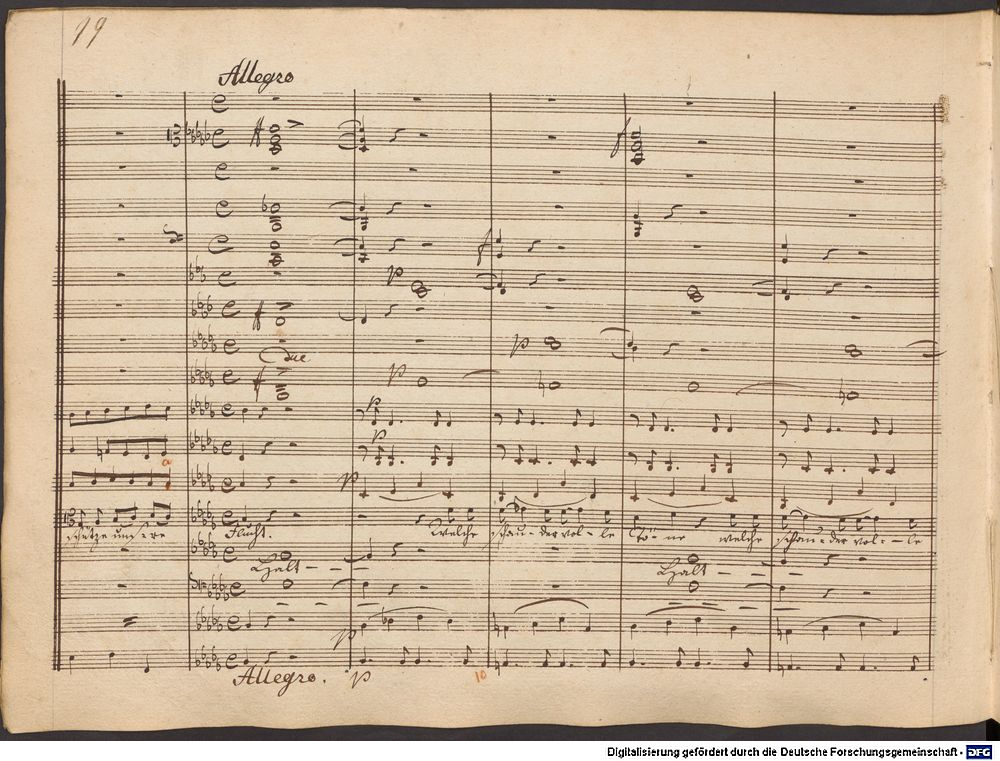 19
Allegro
p
Due
p
p
p
p
p
schütze unsere Flucht. Welche schau-der vol-le Tö-ne welche schau-der vol-le
Halt - - - Halt - - -
p
Allegro. p 10
Digitalisierung gefördert durch die Deutsche Forschungsgemeinschaft - DFG